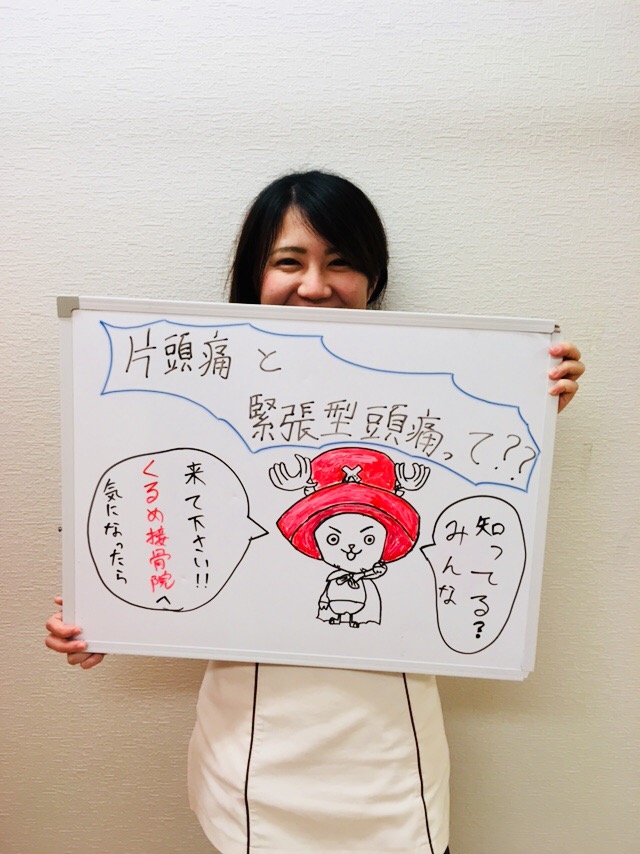 片頭痛と
緊張型頭痛って??
みんな
知ってる?
気になったら
くるめ接骨院へ
来て下さい!!